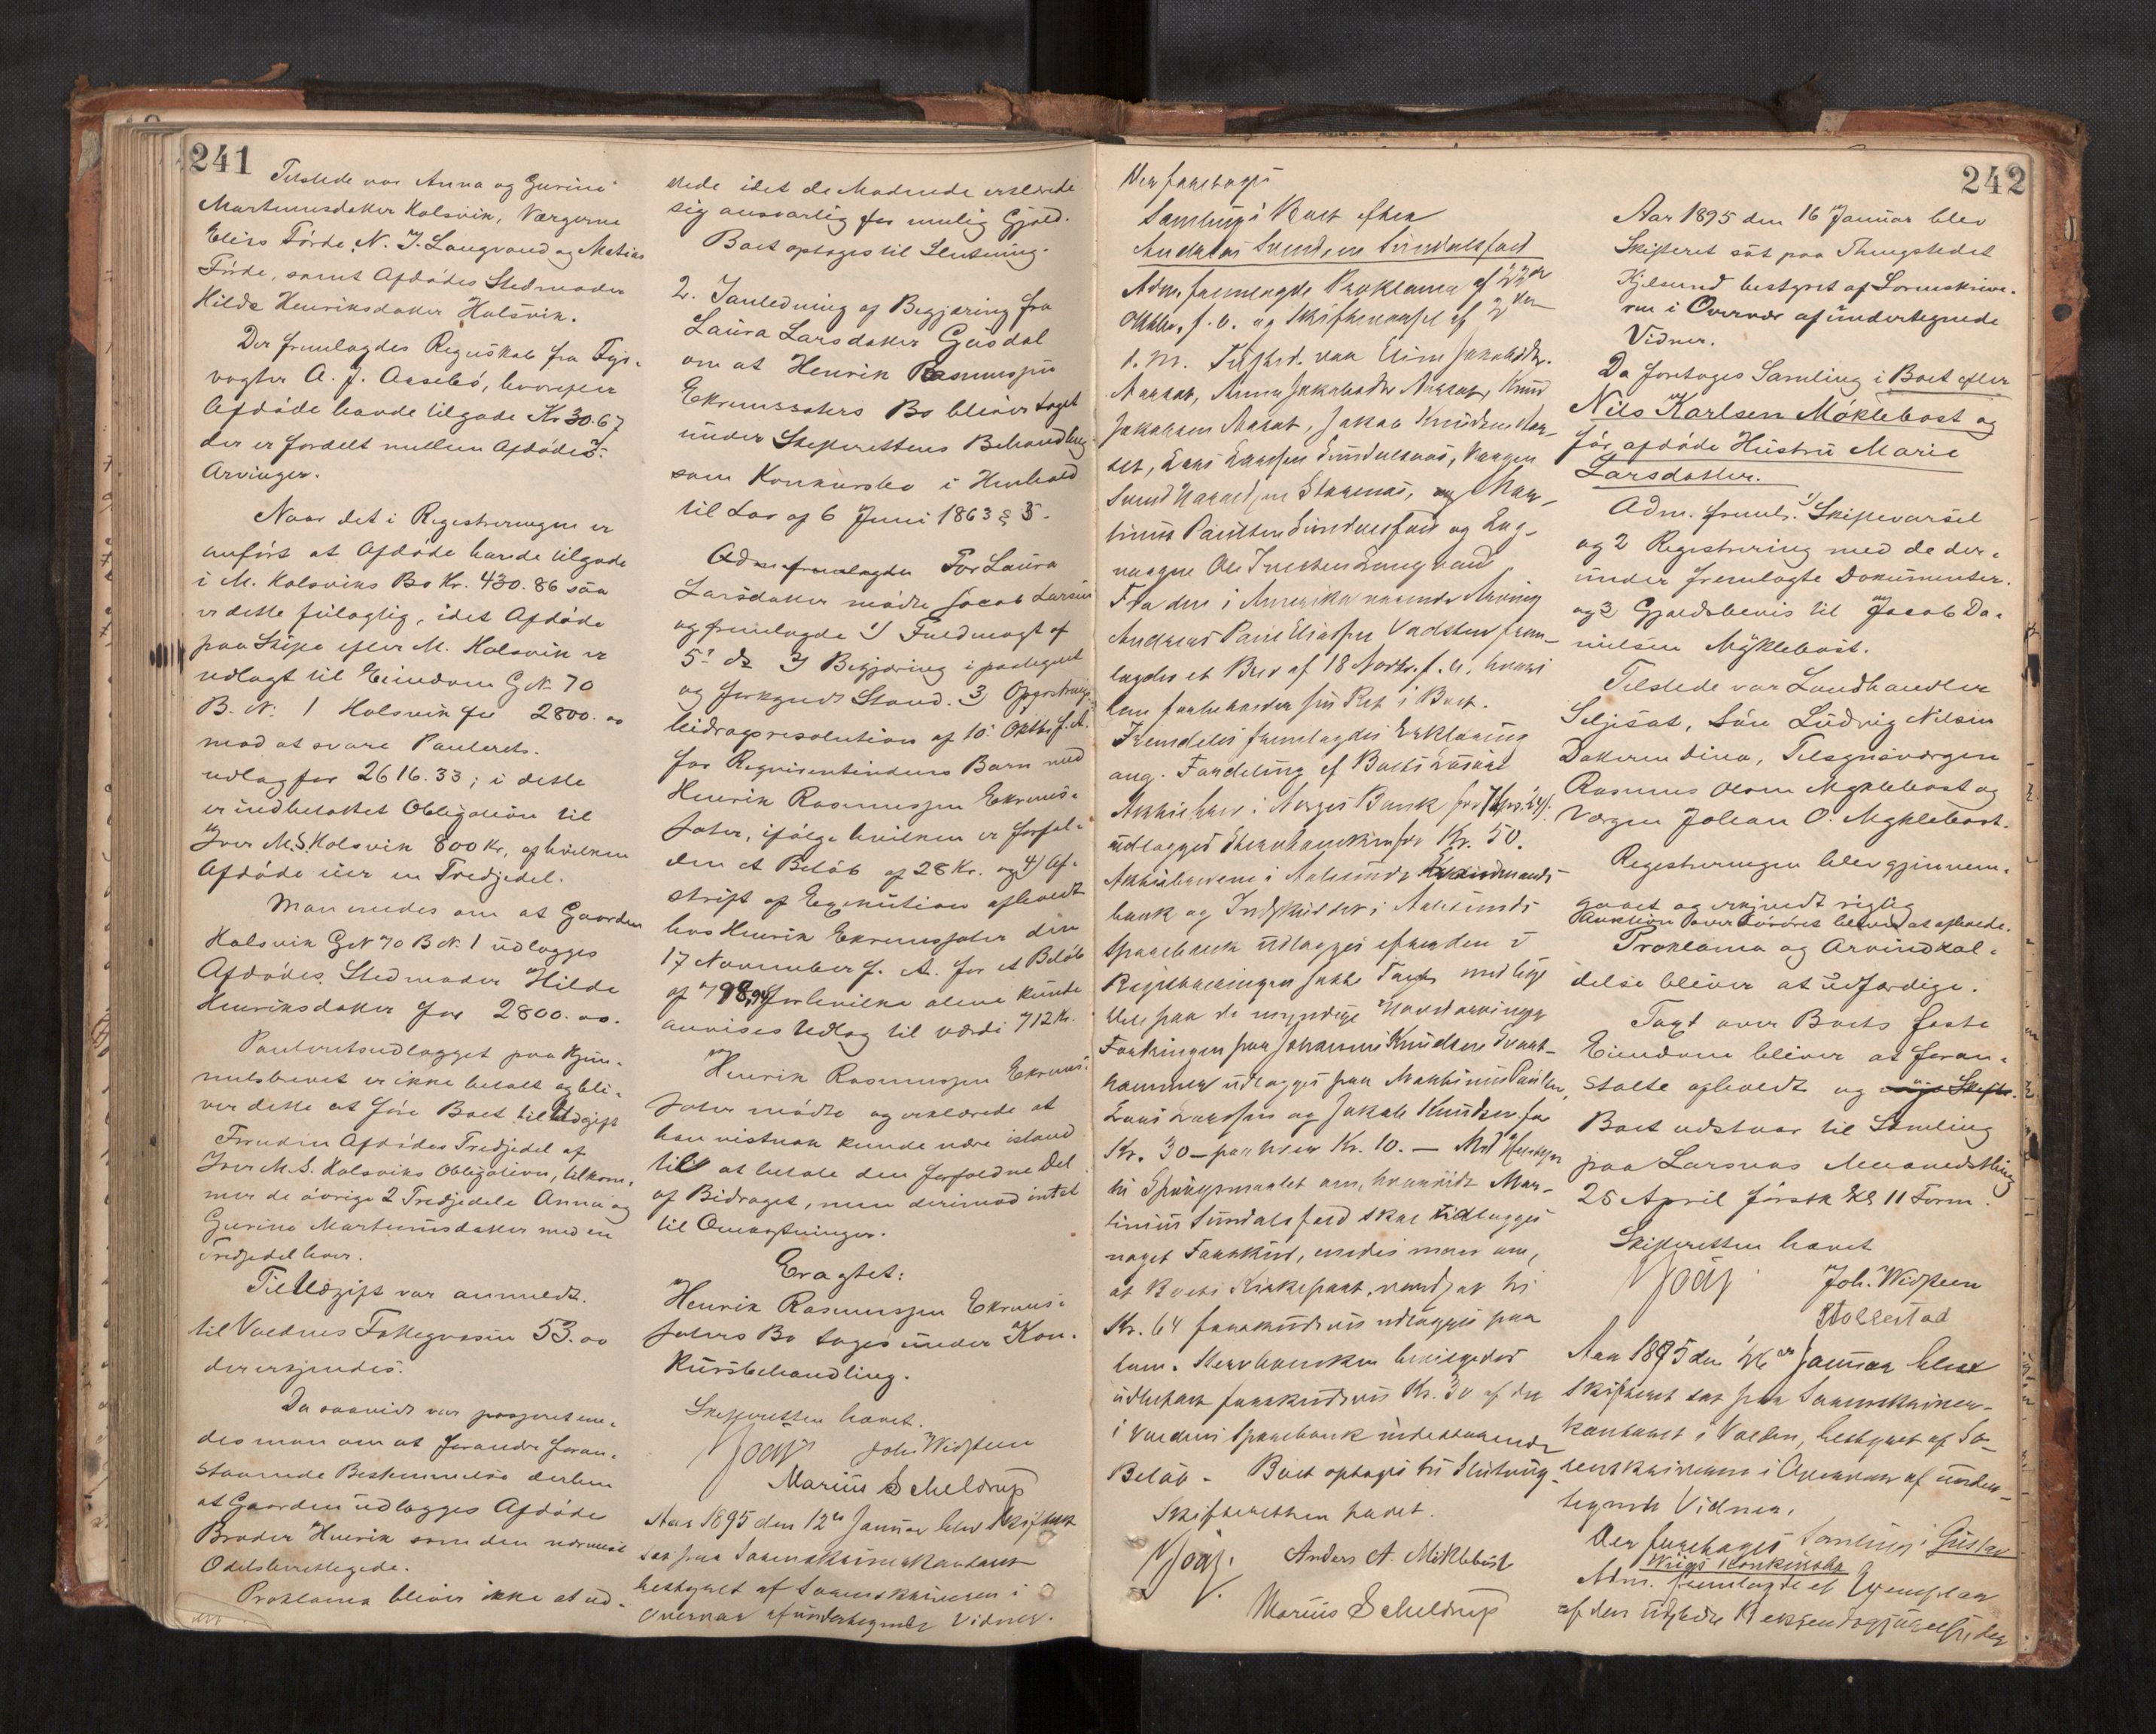 241
Tilstede var Anna og Gurine
Martinusdatter Kolsvik, Værgerne
Elias Förde, N. J. Langvand og Matias
Förde, samt Afdödes Stedmoder
Hilda Henriksdatter Holsvik.
Der fremlagdes Regnskab fra
vogter A. J. Aasebö, hvorefter
Afdöde havde tilgode Kr 30.67
der er fordelt mellem Afdödes
Arvinger.
Naar det i Registreringen er
anfört at Afdöde havde tilgode
i M. Kolsviks Bo Kr. 430.86 saa
er dette feilagtig, idet Afdöde
paa Skifte efter M. Kolsvik er
udlagt til Eiendom G.N. 70
B.N. 1 Holsvik for 2800.00
mod at svare Panterets-
udlæg for 2616.33; i dette
er indbefattet Obligation til
Iver M.S. Kolsvik 800 Kr, af hvilken
Afdöde eier en Tredjedel.
Man enedes om at Gaarden
Holsvik G.N 70 B.N. 1 udlægges
Afdödes Stedmoder Hilde
Henriksdatter for 2800.00.
Panteretsudlægget paa
er ikke betalt og bli-
ver dette at före Boet til Udgift
Foruden Afdödes Tredjedel af
Iver M.S. Kolsviks Obligation, tilkom-
mer de övrige 2 Tredjedele Anna og
Gurine Martinusdatter med en
Tredjedel hver.
Til Udgift var anmeldt.
til Voldens Fattigvæsen 53.00
der erkjendes.
Da saavidt var passeret ene-
des man om at forandre foran-
staaende Bestemmelse derhen
at Gaarden udlægges Afdödes
Broder Henrik som den nærmest
Odelsberettigede.
Proklama bliver ikke at ud-
stede idet de Mödende erklærede
sig ansvarlig for mulig Gjæld.
Boet optages til Slutning.
2. I anledning af Begjæring fra
Laura Larsdatter Gusdal
om at Henrik Rasmussen
Ekremssæters Bo bliver taget
under Skifterettens Behandling
som Konkursbo i Henhold
til Lov af 6 Juni 1863 § 5.
Adm fremlagde For Laura
Larsdatter mödte Jacob Larsen
og fremlagde 1) Fuldmagt af
5' ds 2) Begjæring i paategnet
og forkyndt Stand. 3) Opfostrings-
bidragsresolution af 10' Oktbr f.A.
for Reqvirentindens Barn med
Henrik Rasmussen Ekrems-
sæter, ifölge hvilken er forfal-
den et Belöb af 28 Kr. og 4) Af-
skrift af Exekution afholdt
hos Henrik Ekremssæter den
17 November f. A. for et Belöb
af 798,94 for hvilke alene kunde
anvises Udlæg til værdi 712 Kr.
Henrik Rasmussen Ekrems-
sæter mödte og erklærede at
han vistnok kunde være istand
til at betale den forfaldne Del
af Bidraget, men derimod intet
til Omkostninger.
Eragtet:
Henrik Rasmussen Ekrems-
sæters Bo tages under Kon-
kursbehandling.
Skifteretten hævet.
Joh. Widsteen
Marius Scheldrup
Aar 1895 den 12te Januar blev Skifteret
sat paa Sorenskriverkontoret
bestyret af Sorenskriveren i
Overvær af undertegnede Vidner.
Der foretoges
Samling i Boet efter
Andreas Svendsen Sundalsfold
Adm. fremlagde Proklama af 22de
Oktbr. f. A. og Skiftevarsel af 2den
d. M. Tilsted. var Eline Jakobsdtr.
Aarset, Anna Jakobsdtr Aarset, Knud
Jakobsen Aarset, Jakob Knudsen Aar-
set, Lars Larssen Sundalsnæs, Værgen
Svend og Mar-
tinus Paulsen Sundalsfold og Lag-
værgen Ole Langvand.
Fra den i Amerika værende Arving
Andreas Paul Eliassen Vadsten frem-
lagdes et Brev af 18 Novbr. f. A. hvori
han forbeholder sin Ret i Boet.
Fremdeles fremlagdes Erklæring
ang. Fordeling af Boets Lösöre
Aktiebrev i Norges Bank for
udlægges Sterbenken for Kr. 50.
Aktiebrevene i Aalesunds Kjöbmands-
bank og Indskudet i Aalesunds
Sparebank udlægges efter den i
Registreringen satte Taxt med lige
Dele paa de myndige Hovedarvinger
Fordringen paa Johannes Knudsen
udlægges paa Martinus Paulsen,
Lars Larssen og Jakob Knudsen for
Kr. 30 – paa hver Kr. 10. – Med Hensyn
til Spörgsmaalet om, hvorvidt Mar-
tinus Sundalsfold skal udlægges
noget Forskud, enedes man om,
at Boets Kirkepart, vurderet til
Kr. 64 forskudsvis udlægges paa
ham. Sterbenken bevilgedes
udbetalt forskudsvis Kr. 30 af det
i Voldens Sparebank indestaaende
Belöb. Boet optages til Slutning.
Skifteretten hævet.
Anders A. Möklebust
Marius Scheldrup
242
Aar 1895 den 16 Januar blev
Skifteret sat paa Thingstedet
Kjelsund bestyret af Sorenskrive-
ren i Overvær af undertegnede
Vidner.
Da foretoges Samling i Boet efter
Nils Karlsen Möklebost og
för afdöde Hustru Marie
Larsdatter.
Adm. freml. 1) Skiftevarsel
og 2 Registrering med de der-
under fremlagte Dokumenter.
og 3 Gjældsbevis til Jacob Da-
nielsen Myklebost.
Tilstede var Landhandler
Seljeset, Sön Ludvig Nilsen
Datteren Dina, Tilsynsværgen
Rasmus Olsen Myklebost og
Værgen Johan O. Myklebost.
Registreringen blev gjennem-
gaaet og erkjendt rigtig
Auktion over Lösöret bliver at afholde.
Proklama og Arveindkal-
delse bliver at udfærdige.
Taxt over Boets faste
Eiendom bliver at foran-
stalte afholdt og
Boet udstaar til Samling
paa Larsnæs Maanedsthing
25 April förstk. Kl 11 Form.
Skifteretten hævet
Joh. Widsteen
Aar 1895 den 26de Januar blev
Skifteret sat paa Sorenskriver-
kontoret i Volden, bestyret af So-
renskriveren i Overvær af under-
tegnede Vidner.
Der foretoges Samling i Gustav
Wiigs Konkursbo
Adm. fremlagde et Exemplar
af den udstedte Bekjendtgjörelse, der